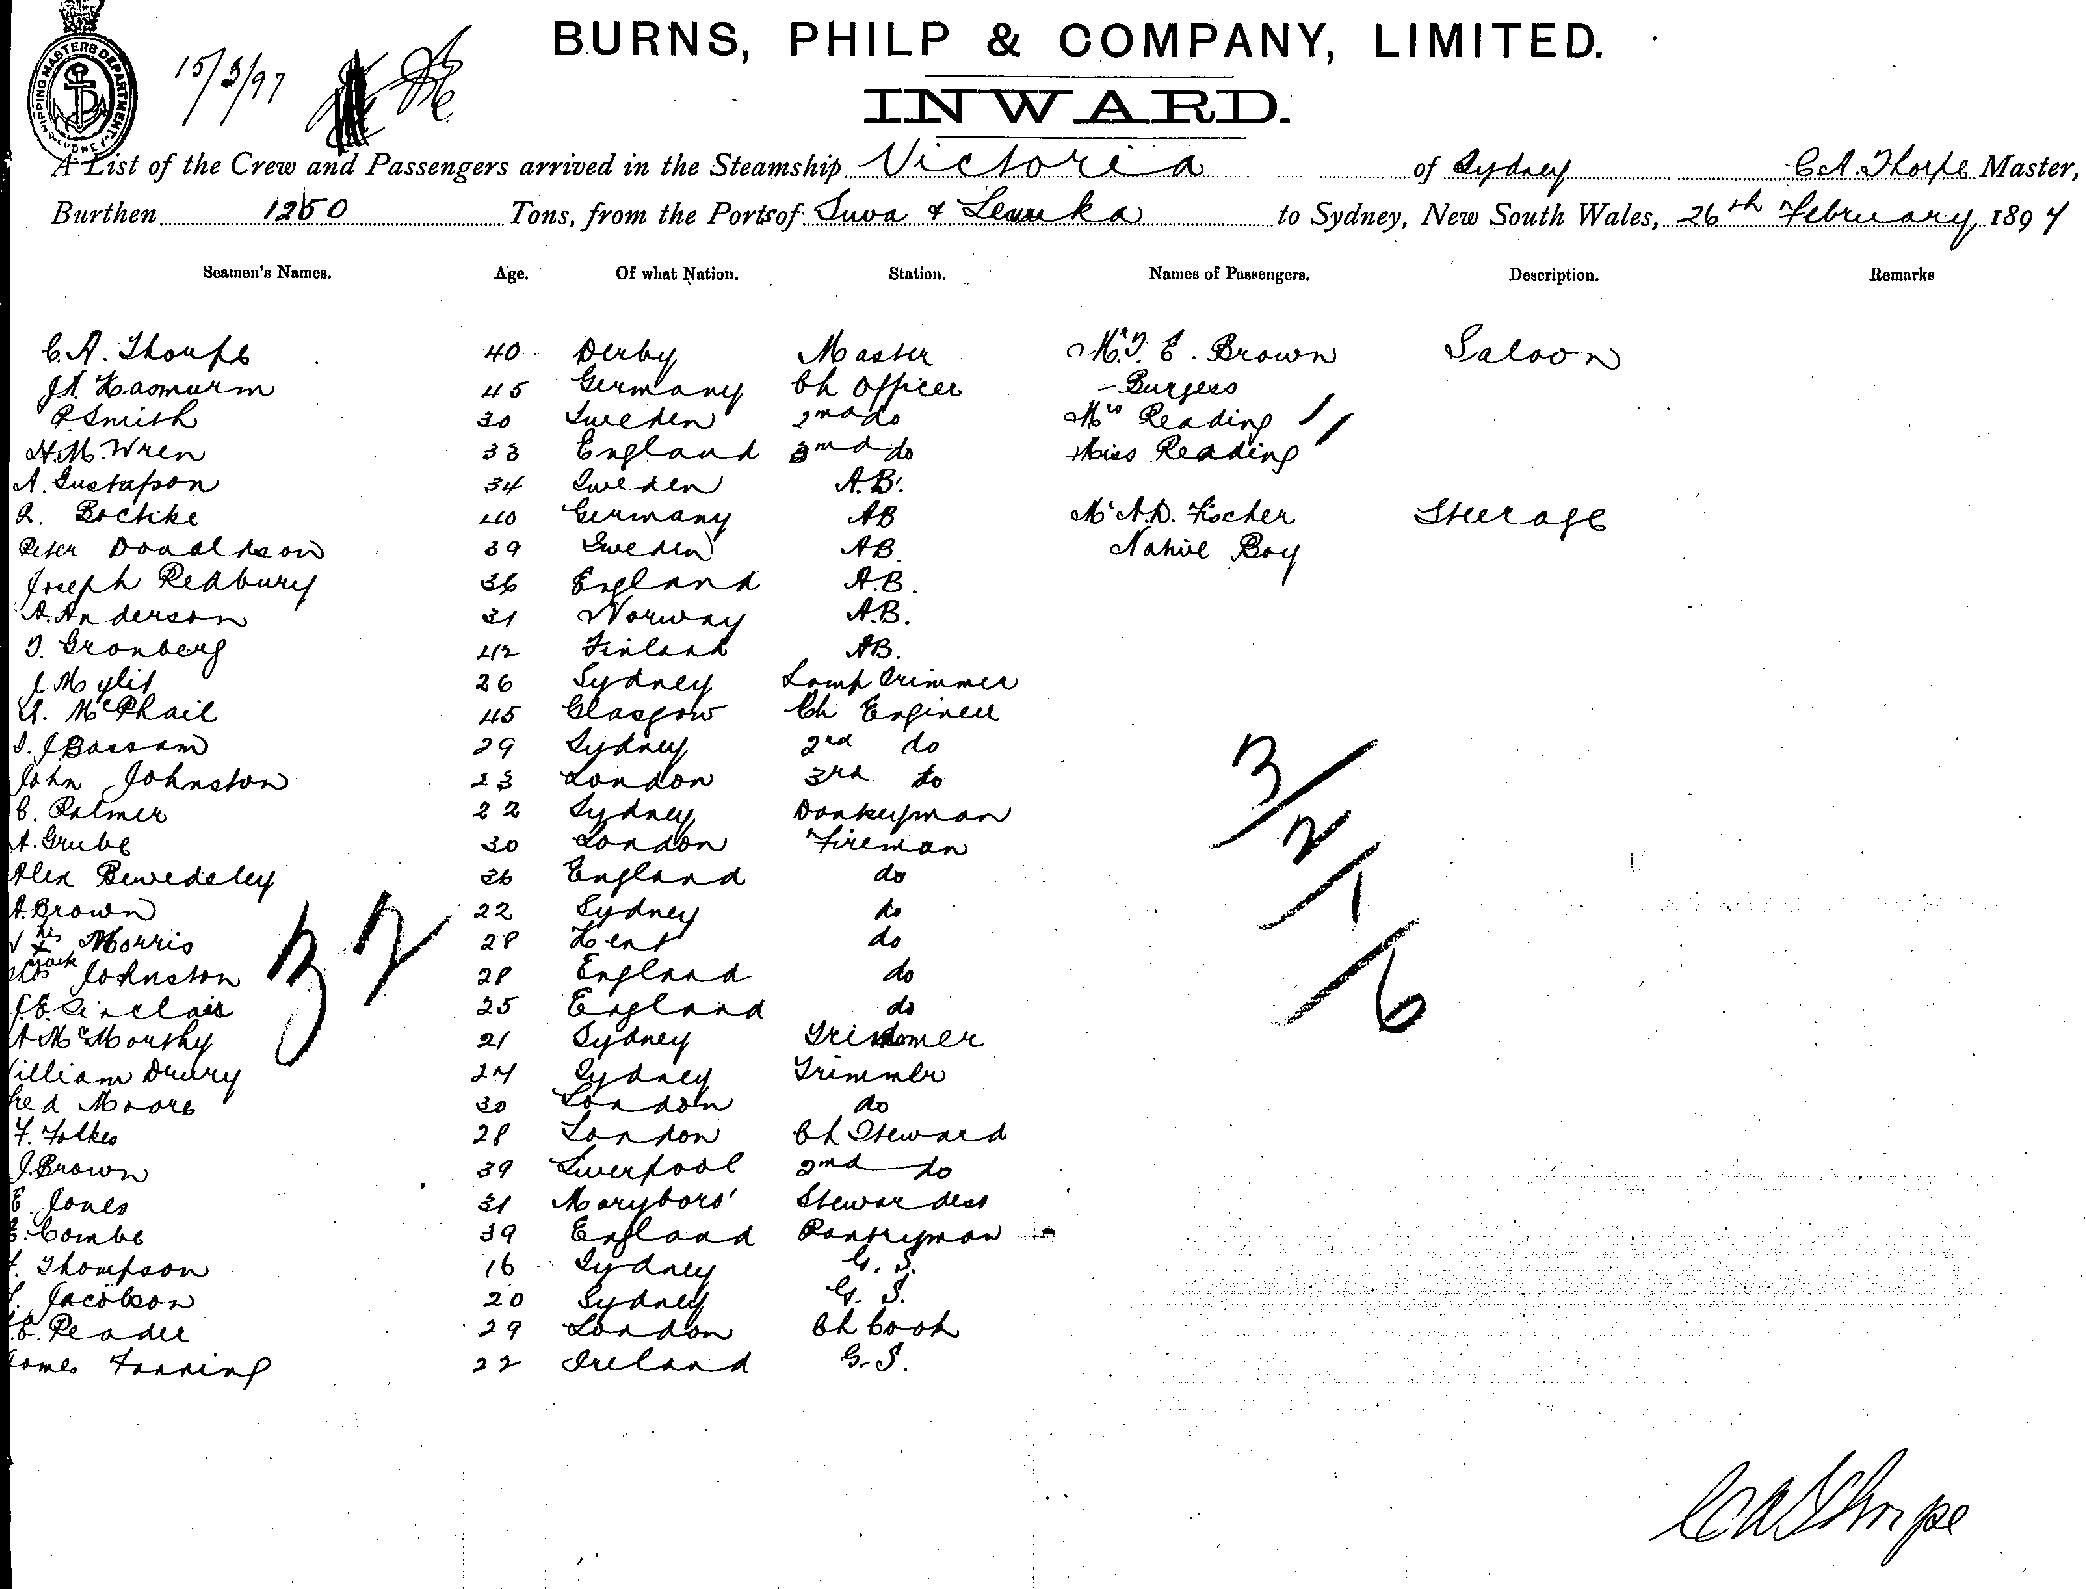 SHIPPING MASTERS DEPARTMENT SYDNEY
15/3/97
BURNS, PHILP & COMPANY, LIMITED.
INWARD.
A List of the Crew and Passengers arrived in the Steamship Victoria of Sydney C.A. Thorpe Master,
Burthen 1250 Tons, from the Ports of Suva & Levuka to Sydney, New South Wales, 26th February 1897
Seamen's Names. Age. Of what Nation. Station. Names of Passengers. Description. Remarks
C.A. Thorpe 40 Derby Master Mr T. E. Brown Saloon
45 Germany Ch Officer - Burgess
P Smith 30 Sweden 2nd do Mrs Reading
H.M. Wren 33 England 3rd do Miss Reading
A. Gustafson 34 Sweden A.B.
R. 40 Germany AB Mr A.D. Fischer Steerage
Peter Donaldson 39 Sweden AB. Native Boy
Joseph Redbury 36 England A.B.
A. Anderson 31 Norway A.B.
T. Gronberg 42 Finland AB.
J. 26 Sydney Lamp Trimmer
A. McPhail 45 Glasgow Ch Engineer
J. Bassam 29 Sydney 2nd do
John Johnston 23 London 3rd do
C. Palmer 22 Sydney Donkeyman
A. Grube 30 London Fireman
Alex 36 England do
A. Brown 22 Sydney do
his x mark Morris 28 Kent do
Johnston 28 England do
E. Sinclair 25 England do
A McMorthy 21 Sydney Trimmer
William Drury 24 Sydney Trimmer
Fred Moore 30 London do
F. Folkes 28 London Ch Steward
J. Brown 39 Liverpool 2nd do
E. Jones 31 Maryboro' Stewardess
Combe 39 England Pantryman
Thompson 16 Sydney G. S.
Jacobson 20 Sydney G. S.
Reader 29 London Ch Cook
James Fanning 22 Ireland G. S.
32
3/2/1/6
C A Thorpe